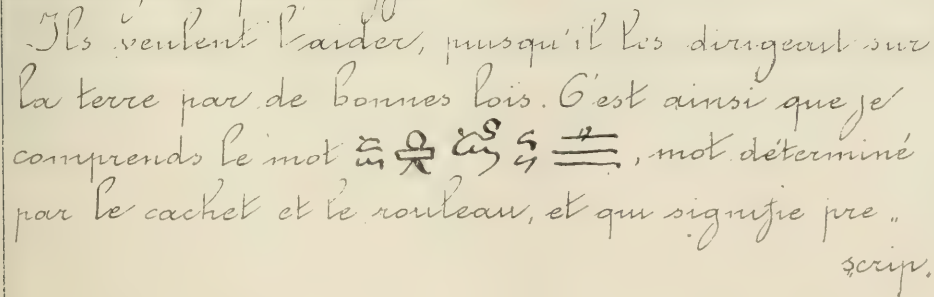 Ils veulent l'aider, puisqu'il les dirigeait sur
la terre par de bonnes lois. C'est ainsi que je
comprends le mot , mot déterminé
par le cachet et le rouleau, et qui signifie pre„
scrip.